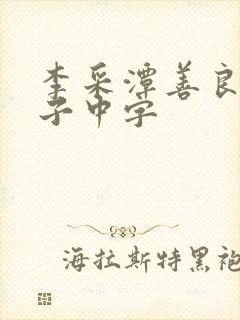 李采潭善良
子中字
海拉斯特黑袍